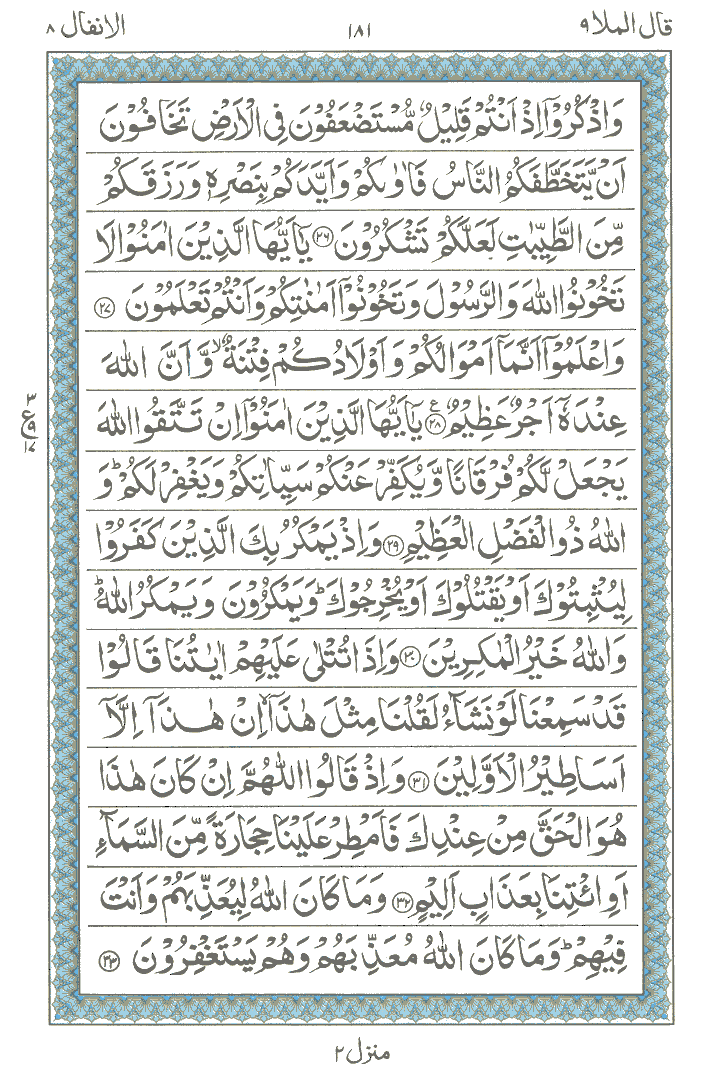 قال الملا ٩
١٨١
الانفال ٨
وَاذْكُرُوْۤا اِذْ اَنْتُمْ قَلِيْلٌ مُّسْتَضْعَفُوْنَ فِى الْاَرْضِ تَخَافُوْنَ
اَنْ يَّتَخَطَّفَكُمُ النَّاسُ فَاٰوٰىكُمْ وَاَيَّدَكُمْ بِنَصْرِهٖ وَرَزَقَكُمْ
مِّنَ الطَّيِّبٰتِ لَعَلَّكُمْ تَشْكُرُوْنَ ﴿٢٦﴾ يٰۤاَيُّهَا الَّذِيْنَ اٰمَنُوْا لَا
تَخُوْنُوا اللّٰهَ وَالرَّسُوْلَ وَتَخُوْنُوْۤا اَمٰنٰتِكُمْ وَاَنْتُمْ تَعْلَمُوْنَ ﴿٢٧﴾
وَاعْلَمُوْۤا اَنَّمَاۤ اَمْوَالُكُمْ وَاَوْلَادُكُمْ فِتْنَةٌ ۙ وَّاَنَّ اللّٰهَ
عِنْدَهٗۤ اَجْرٌ عَظِيْمٌ ﴿٢٨﴾ ع يٰۤاَيُّهَا الَّذِيْنَ اٰمَنُوْۤا اِنْ تَتَّقُوا اللّٰهَ
يَجْعَلْ لَّكُمْ فُرْقَانًا وَّيُكَفِّرْ عَنْكُمْ سَيِّاٰتِكُمْ وَيَغْفِرْ لَكُمْ ؕ وَ
اللّٰهُ ذُو الْفَضْلِ الْعَظِيْمِ ﴿٢٩﴾ وَاِذْ يَمْكُرُ بِكَ الَّذِيْنَ كَفَرُوْا
لِيُثْبِتُوْكَ اَوْ يَقْتُلُوْكَ اَوْ يُخْرِجُوْكَ ؕ وَيَمْكُرُوْنَ وَيَمْكُرُ اللّٰهُ ؕ
وَاللّٰهُ خَيْرُ الْمٰكِرِيْنَ ﴿٣٠﴾ وَاِذَا تُتْلٰى عَلَيْهِمْ اٰيٰتُنَا قَالُوْا
قَدْ سَمِعْنَا لَوْ نَشَآءُ لَقُلْنَا مِثْلَ هٰذَاۤ ۙ اِنْ هٰذَاۤ اِلَّاۤ
اَسَاطِيْرُ الْاَوَّلِيْنَ ﴿٣١﴾ وَاِذْ قَالُوا اللّٰهُمَّ اِنْ كَانَ هٰذَا
هُوَ الْحَقَّ مِنْ عِنْدِكَ فَاَمْطِرْ عَلَيْنَا حِجَارَةً مِّنَ السَّمَآءِ
اَوِ ائْتِنَا بِعَذَابٍ اَلِيْمٍ ﴿٣٢﴾ وَمَا كَانَ اللّٰهُ لِيُعَذِّبَهُمْ وَاَنْتَ
فِيْهِمْ ؕ وَمَا كَانَ اللّٰهُ مُعَذِّبَهُمْ وَهُمْ يَسْتَغْفِرُوْنَ ﴿٣٣﴾
٣
ع ٩
١٧
منزل ٢